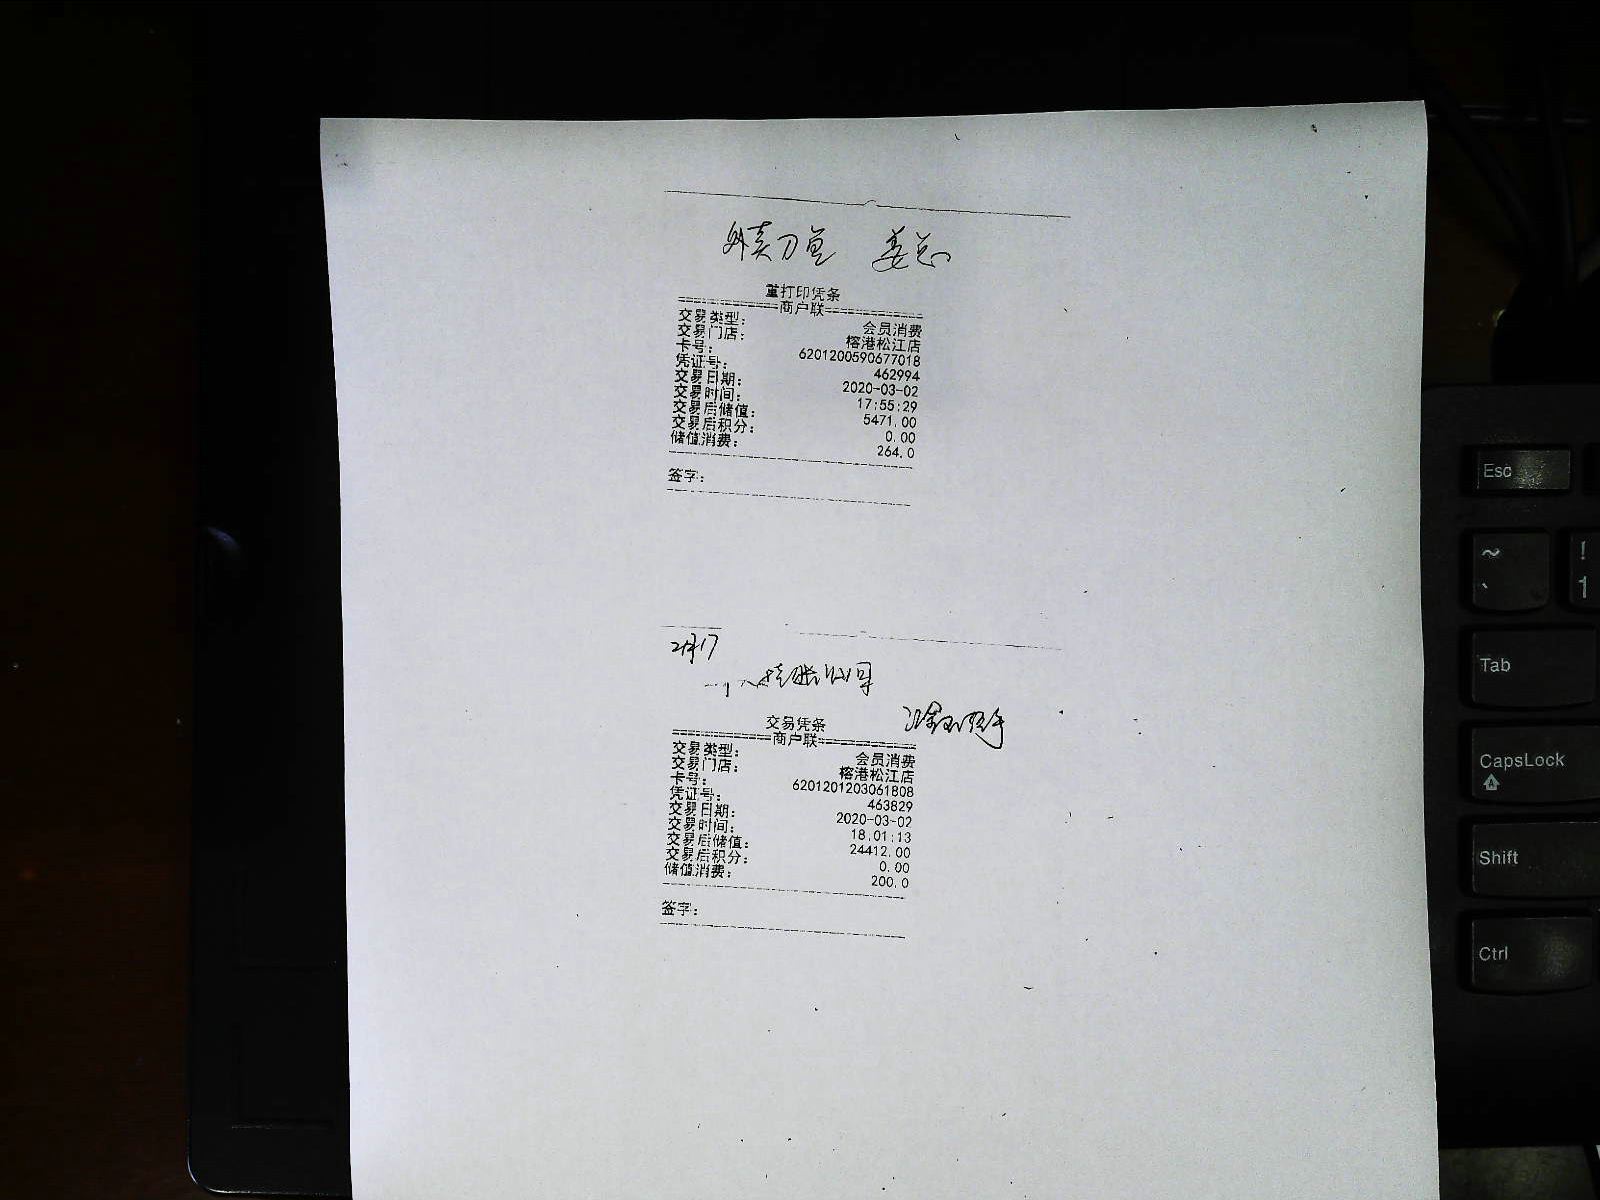 外卖刀鱼 姜总
重打印凭条
============商户联============
交易类型: 会员消费
交易门店: 榕港松江店
卡号: 6201200590677018
凭证号: 462994
交易日期: 2020-03-02
交易时间: 17:55:29
交易后储值: 5471.00
交易后积分: 0.00
储值消费: 264.0
签字:
2月17
交易凭条
============商户联============
交易类型: 会员消费
交易门店: 榕港松江店
卡号: 6201201203061808
凭证号: 463829
交易日期: 2020-03-02
交易时间: 18:01:13
交易后储值: 24412.00
交易后积分: 0.00
储值消费: 200.0
签字:
Esc
~
`
!
1
Tab
CapsLock
Shift
Ctrl